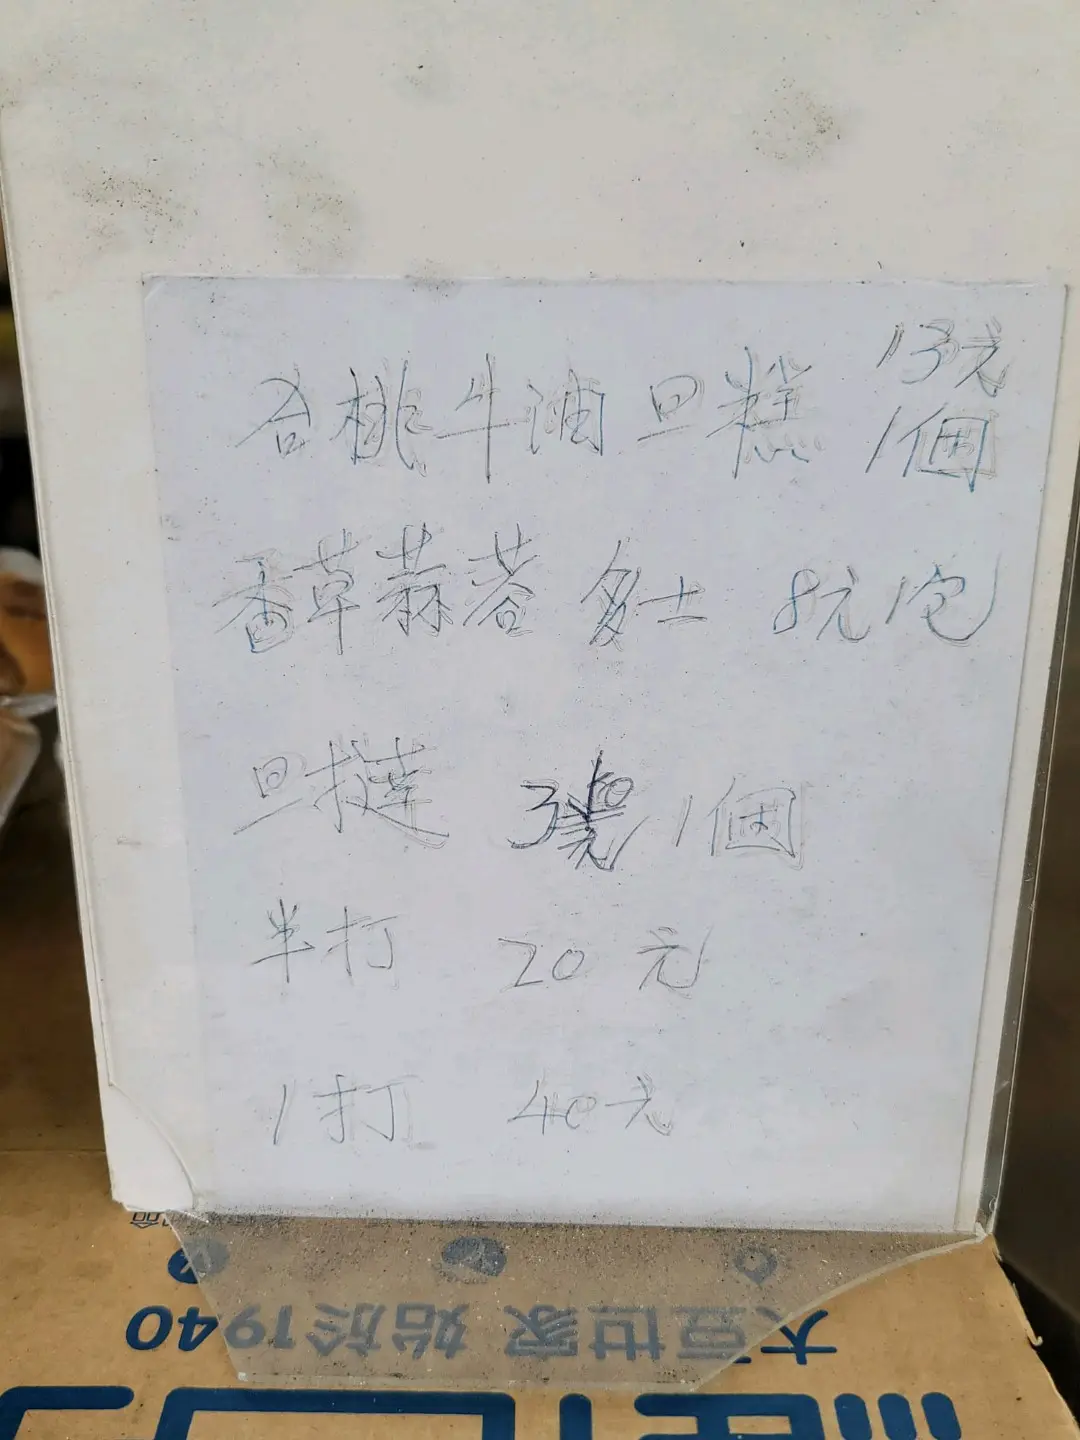 合桃牛油旦糕 13元
1個
香草蒜茸多士 8元1包
旦撻 3元 1個
半打 20元
1打 40元
大豆世家 始於1940